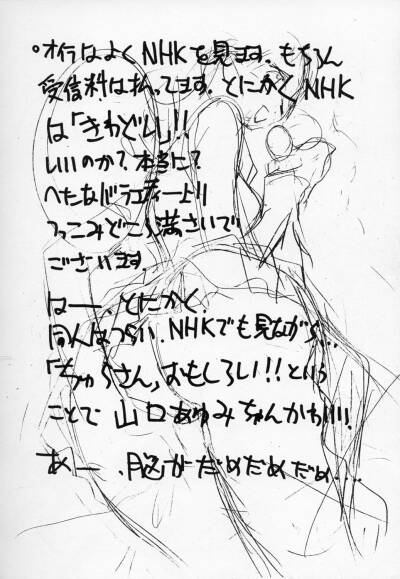 °オイラはよくNHKを見ます。もちろん
受信料は払ってます。とにかくNHK
は「きわどい」!!
いいのか?本当に?
へたなバラエティーより
つっこみどころ満さいで
ございます。
はー、とにかく、
同人はつらい。NHKでも見ながら...
「ちゅらさん」おもしろい!!という
ことで山口あゆみちゃんかわいい!
あー、脳がだめだめだめ....